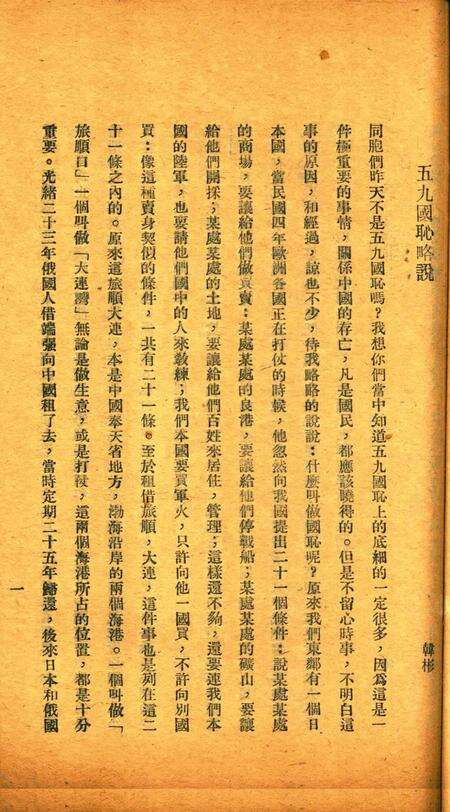 五九國恥略說
韓彬
同胞們昨天不是五九國恥嗎?我想你們當中知道五九國恥上的底細的一定很多,因爲這是一
件極重要的事情,關係中國的存亡,凡是國民,都應該曉得的。但是不留心時事,不明白這
事的原因,和經過,諒也不少,待我略略的說說:什麼叫做國恥呢?原來我們東鄰有一個日
本國,當民國四年歐洲各國正在打仗的時候,他忽然向我國提出二十一個條件:說某處某處
的商場,要讓給他們做買賣:某處某處的良港,要讓給他們停戰船;某處某處的礦山,要讓
給他們開採;某處某處的土地,要讓給他們百姓來居住,管理;這樣還不夠,還要連我們本
國的陸軍,也要請他們國中的人來教練;我們本國要買軍火,只許向他一國買,不許向別國
買:像這種賣身契似的條件,一共有二十一條。至於租借旅順,大連,這件事也是列在這二
十一條之內的。原來這旅順大連,本是中國奉天省地方,渤海沿岸的兩個海港。一個叫做「
旅順口」一個叫做「大連灣」無論是做生意,或是打仗,這兩個海港所占的位置,都是十分
重要。光緒二十三年俄國人借端强向中國租了去,當時定期二十五年歸還,後來日本和俄國
一